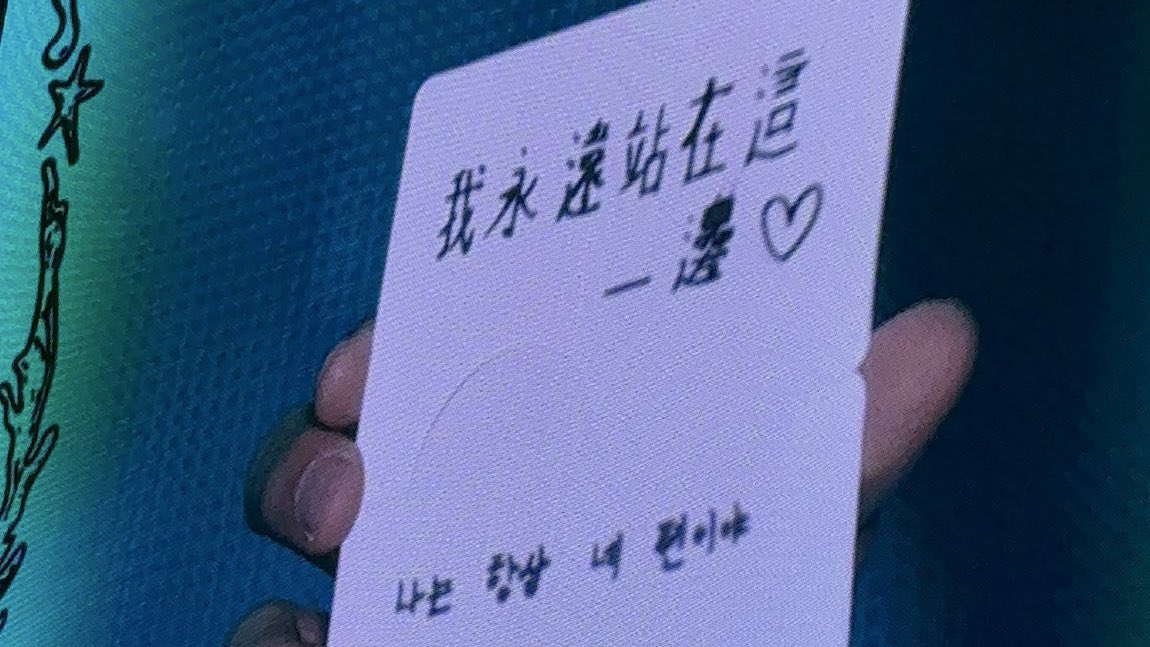 我永遠站在這
一邊♡
나는 항상 네 편이야